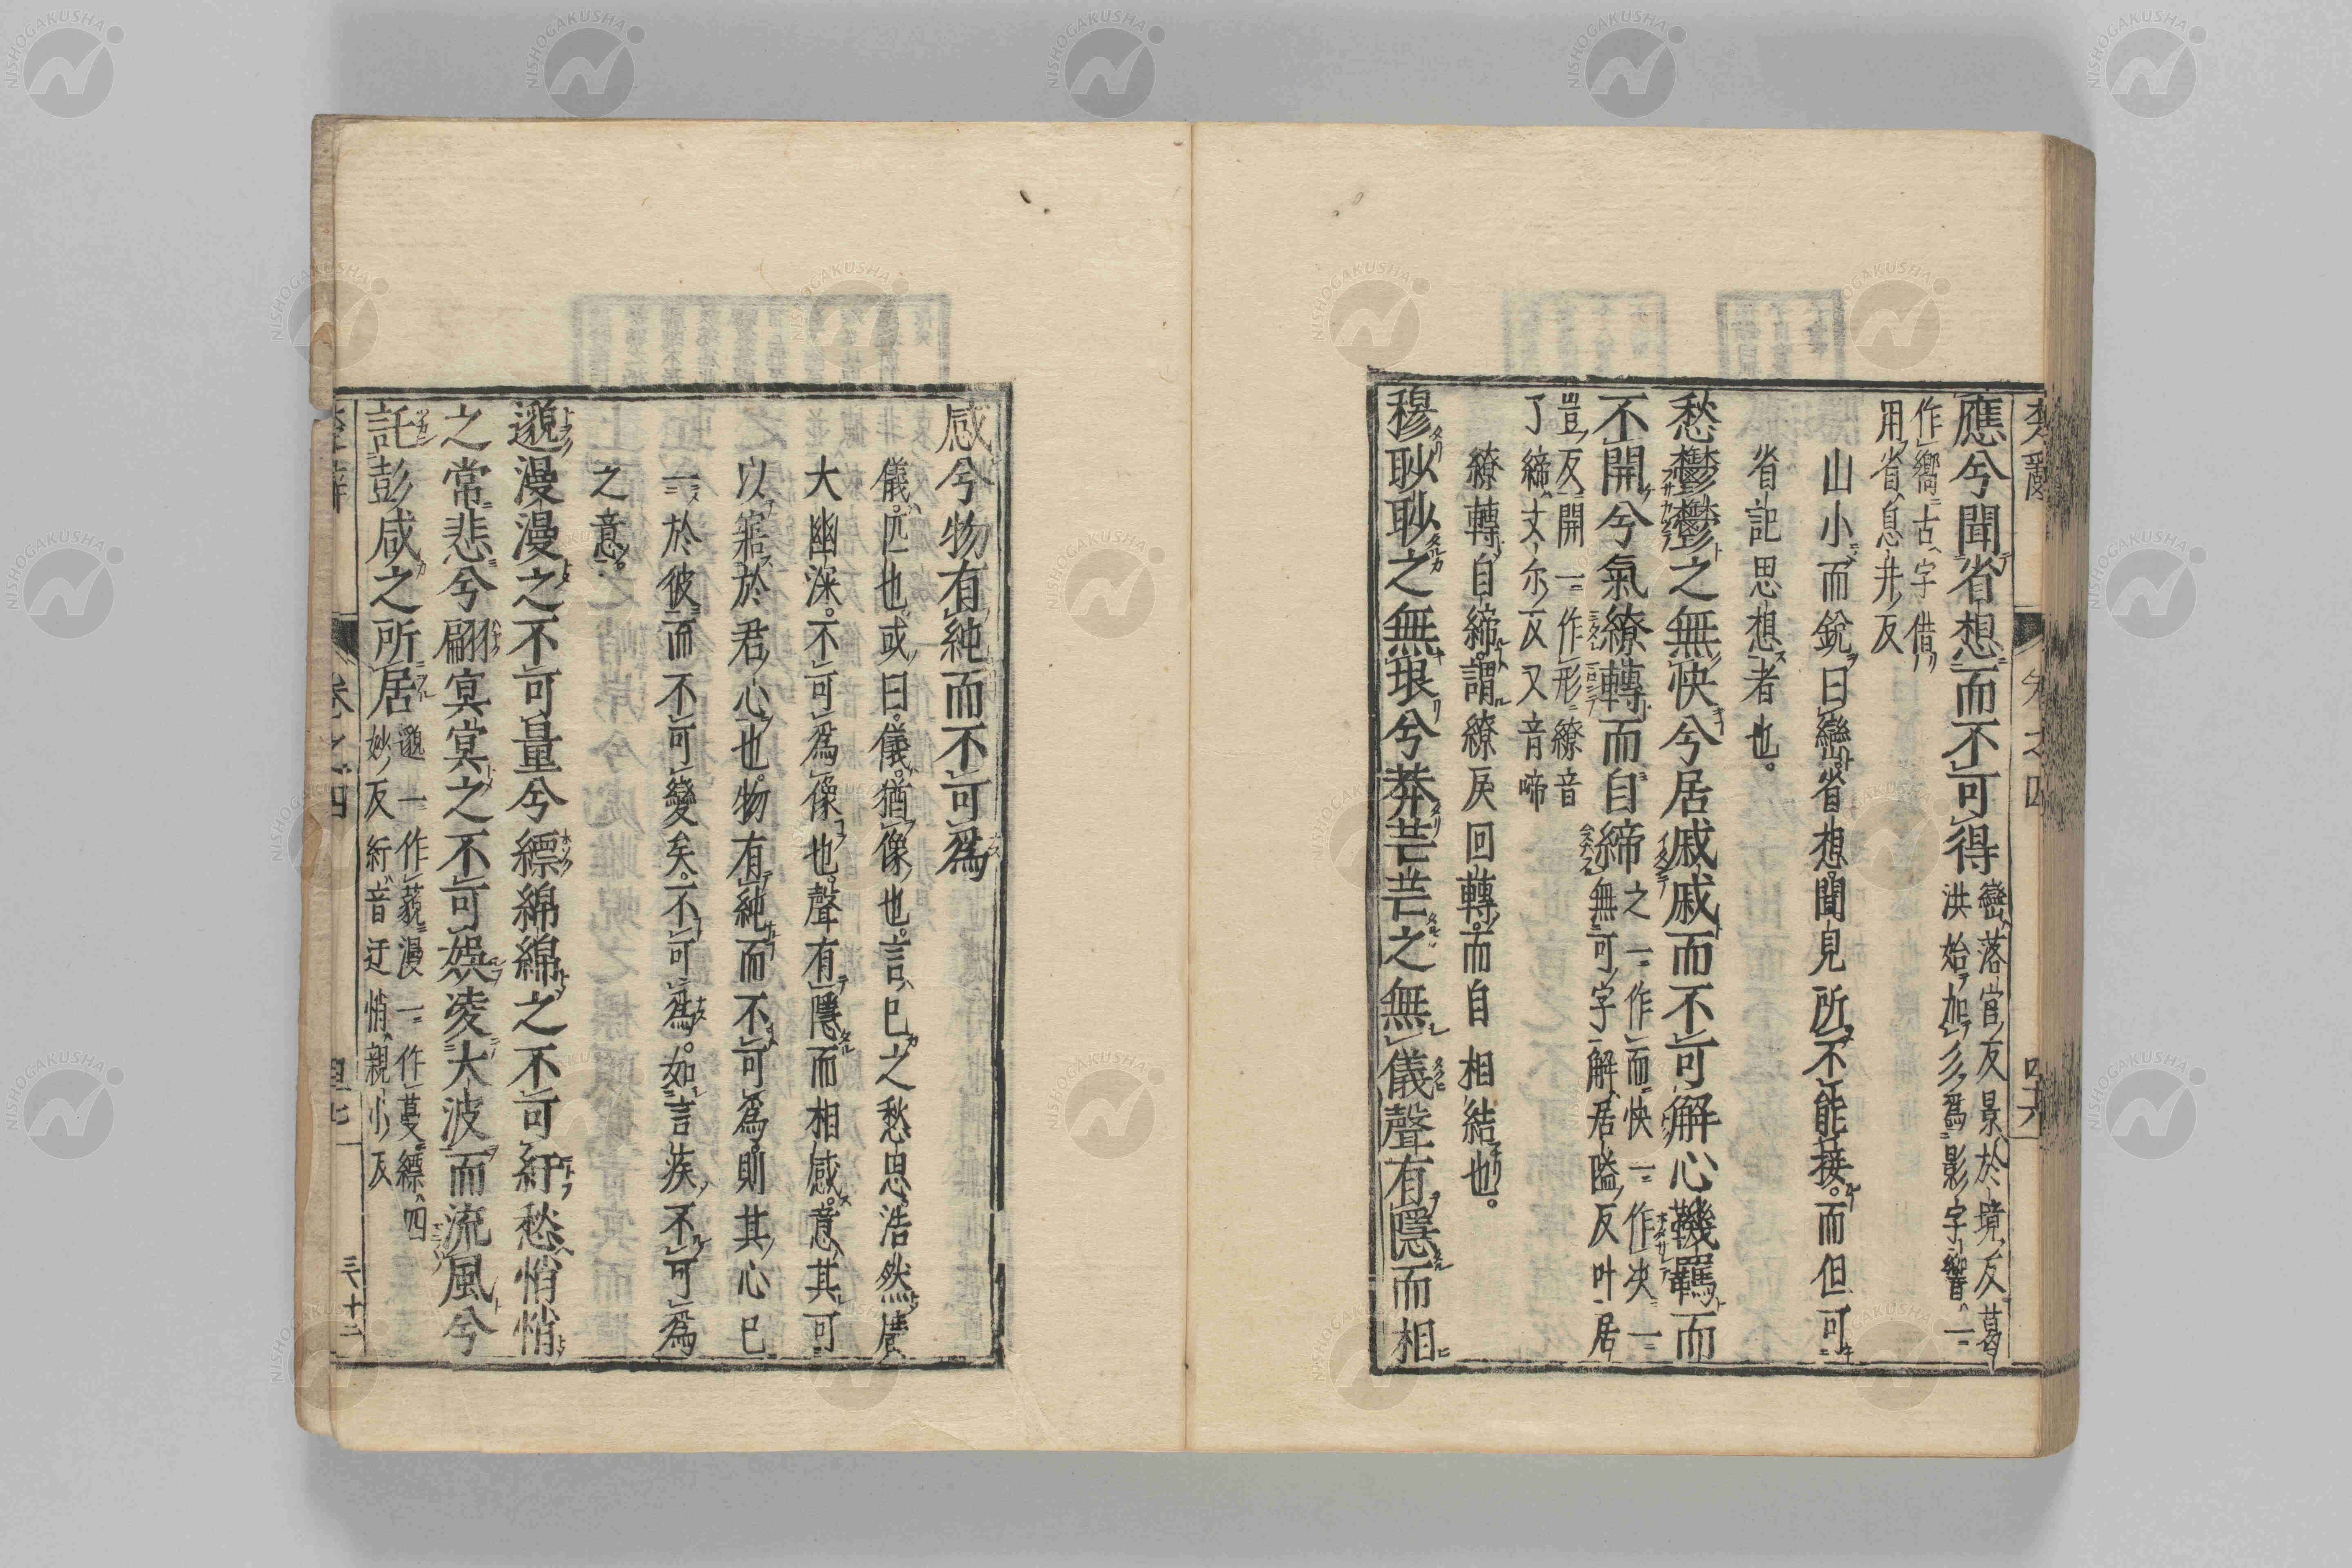 應兮聞省想而不可得巒落官反景於境反葛
洪始加彡爲影字響一
作嚮古字借
用省息井反
山小而銳曰巒省想聞見所不能接。而但可
省記思想者也。
愁鬱鬱之無快兮居戚戚而不可解心鞿羈而
不開兮氣繚轉而自締之一作而快一作决一
無可字解居隘反叶居
豈反開一作形繚音
了締丈尔反又音啼
繚轉自締。謂繚戾回轉。而自相結也。
穆眇眇之無垠兮莽芒芒之無儀聲有隱而相
感兮物有純而不可爲
儀。匹也。或曰。儀。猶像也。言已之愁思。浩然廣
大幽深。不可爲像也。聲有隱而相感。意其可
以寤於君心也。物有純而不可爲。則其心已
一於彼而不可變矣。不可爲。如言疾不可爲
之意。
邈漫漫之不可量兮縹綿綿之不可紆愁悄悄
之常悲兮翩冥冥之不可娛凌大波而流風兮
託彭咸之所居邈一作藐漫一作蔓縹四
妙反紆音迂悄親小反
卷之四
三十二
NISHOGAKUSHA